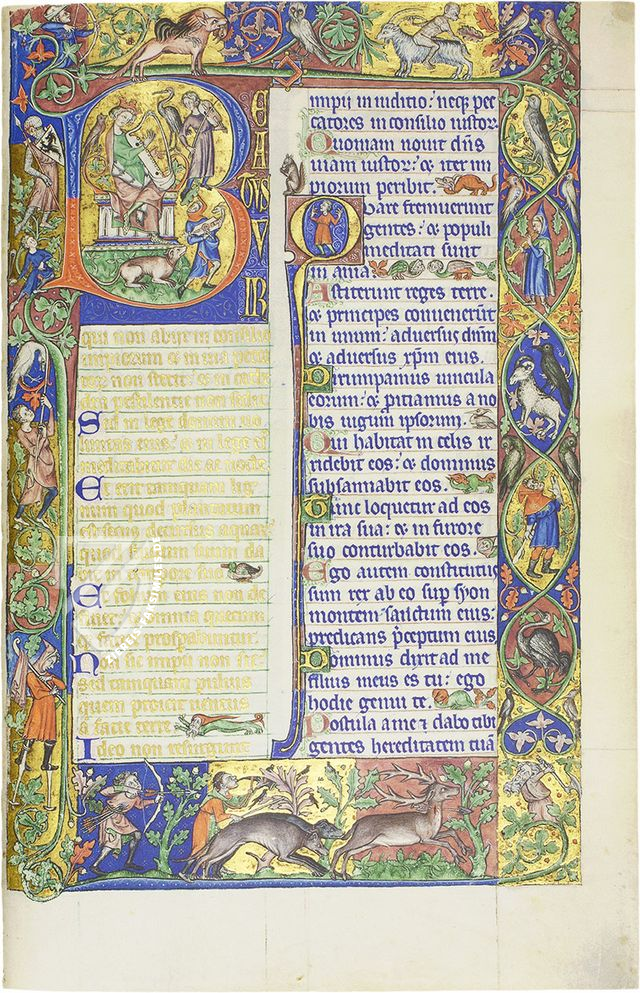 B
EATUS
V
IR
qui non abijt in consilio
impiorum et in uia pecca
tor non stetit: et in cathe
dra pestilentie non sedit.
Sed in lege domini uo
luntas eius: et in lege ei
meditabitur die ac nocte.
Et erit tanquam lig
num quod plantatum
est secus decursus aquar
quod fructum suum da
bit in tempore suo
Et folium eius non de
fluet: et omnia quecum
q faciet prosperabuntur.
Non sic impij non sic:
sed tanquam puluis
quem proicit uentus
a facie terre.
Ideo non resurgunt
impij in iuditio: neq pec
catores in consilio iustor
Quoniam nouit dns
uiam iustor: et iter im
piorum peribit.
Quare fremuerunt
gentes: et populi
meditati sunt
in ania
Astiterunt reges terre.
et principes conuenerut
in unum: aduersus dnm
et aduersus xpm eius.
Dirumpamus uincula
eorum: et proitiamus a no
bis iugum ipsorum.
Qui habitat in celis ir
ridebit eos: et dominus
subsannabit eos.
Tunc loquetur ad eos
in ira sua: et in furore
suo conturbabit eos.
Ego autem constitutus
sum rex ab eo sup syon
montem sanctum eius:
predicans pceptum eius
Dominus dixit ad me
filius meus es tu: ego
hodie genui te.
Postula a me et dabo tibi
gentes hereditatem tua